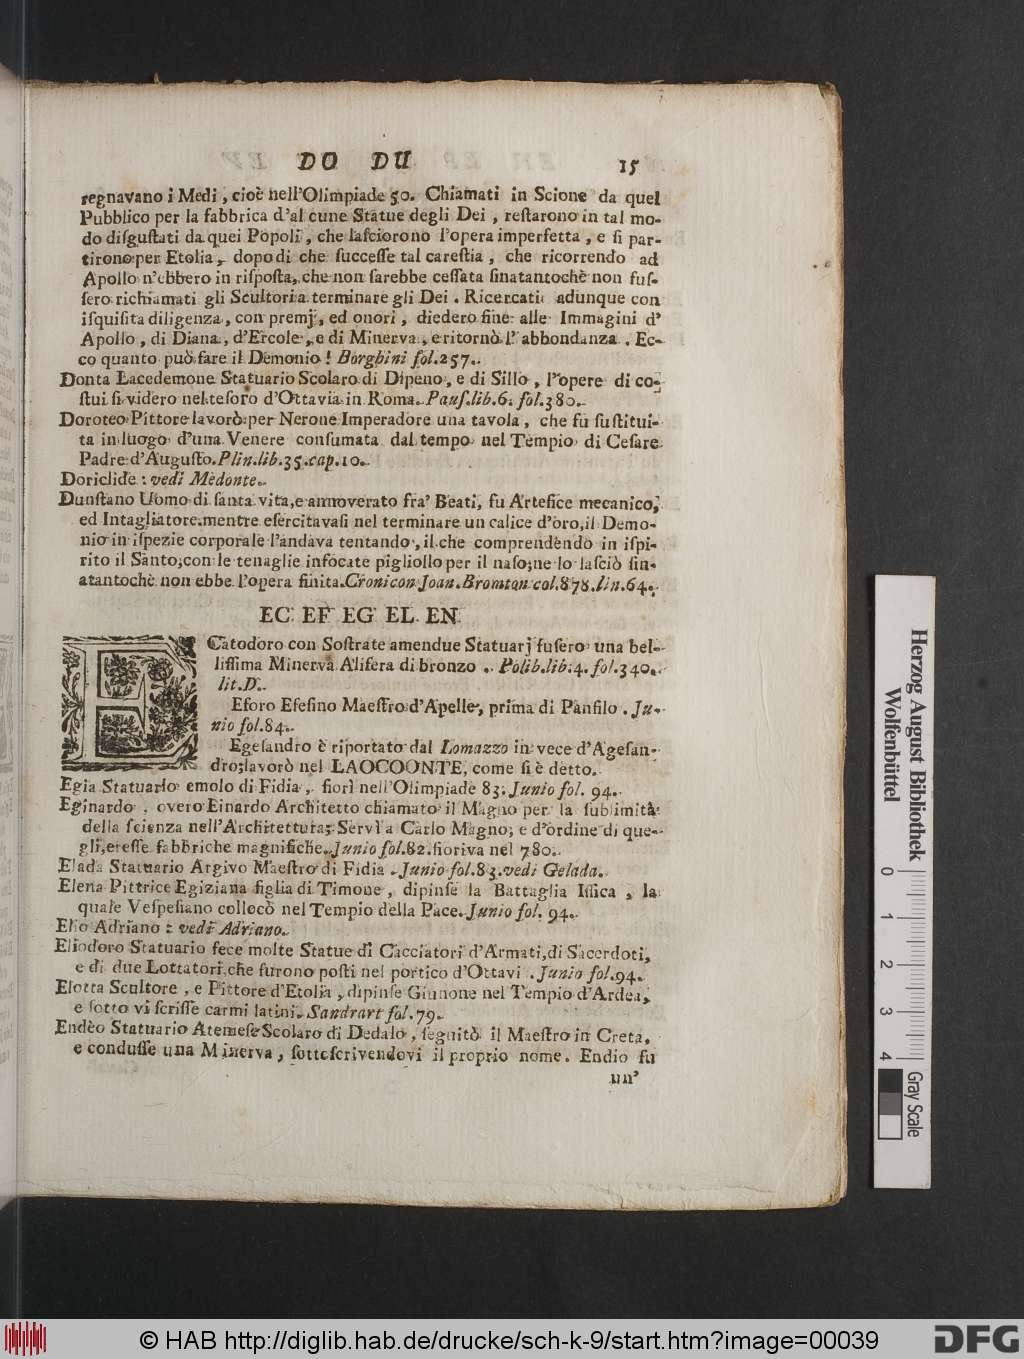 DO DU 15
regnavano i Medi, cioè nell'Olimpiade 50. Chiamati in Scione da quel
Pubblico per la fabbrica d'alcune Statue degli Dei, reſtarono in tal mo-
do diſguſtati da quei Popoli, che laſciorono l'opera imperfetta, e ſi par-
tirono per Etolia, dopo di che ſucceſſe tal careſtia, che ricorrendo ad
Apollo n'ebbero in riſpoſta, che non ſarebbe ceſſata ſinatantochè non fuſ-
ſero richiamati gli Scultori a terminare gli Dei. Ricercati adunque con
iſquiſita diligenza, con premj, ed onori, diedero fine alle Immagini d'
Apollo, di Diana, d'Ercole, e di Minerva, e ritornò l'abbondanza. Ec-
co quanto può fare il Demonio! Borghini fol.257.
Donta Lacedemone Statuario Scolaro di Dipeno, e di Sillo, l'opere di co-
ſtui ſi videro nel teſoro d'Ottavia in Roma. Pauſ.lib.6. fol.380.
Doroteo Pittore lavorò per Nerone Imperadore una tavola, che fu ſuſtitui-
ta in luogo d'una Venere conſumata dal tempo nel Tempio di Ceſare
Padre d'Auguſto. Plin.lib.35.cap.10.
Doriclide: vedi Medonte.
Dunſtano Uomo di ſanta vita, e annoverato fra' Beati, fu Artefice mecanico,
ed Intagliatore. mentre eſercitavaſi nel terminare un calice d'oro, il Demo-
nio in iſpezie corporale l'andava tentando, il che comprendendo in iſpi-
rito il Santo; con le tenaglie infocate pigliollo per il naſo; ne lo laſciò ſin-
atantochè non ebbe l'opera finita. Cronicon Joan. Bromton col.878.lin.64.
EC. EF EG EL. EN.
ECatodoro con Soſtrate amendue Statuarj fuſero una bel-
liſſima Minerva Aliſera di bronzo. Polib.lib.4. fol.340.
lit.D.
Eforo Efeſino Maeſtro d'Apelle, prima di Panfilo. Ju-
nio fol.84.
Egeſandro è riportato dal Lomazzo in vece d'Ageſan-
dro; lavorò nel LAOCOONTE, come ſi è detto.
Egia Statuario emolo di Fidia, fiorì nell'Olimpiade 83. Junio fol. 94.
Eginardo, overo Einardo Architetto chiamato il Magno per la ſublimità
della ſcienza nell'Architettura; Servì a Carlo Magno; e d'ordine di que-
gli, ereſſe fabbriche magnifiche. Junio fol.82. fioriva nel 780.
Elada Statuario Argivo Maeſtro di Fidia. Junio fol.83. vedi Gelada.
Elena Pittrice Egiziana figlia di Timone, dipinſe la Battaglia Iſſica, la
quale Veſpeſiano collocò nel Tempio della Pace. Junio fol. 94.
Elio Adriano: vedi Adriano.
Eliodoro Statuario fece molte Statue di Cacciatori d'Armati, di Sacerdoti,
e di due Lottatori, che furono poſti nel portico d'Ottavi. Junio fol.94.
Elotta Scultore, e Pittore d'Etolia, dipinſe Giunone nel Tempio d'Ardea,
e ſotto vi ſcriſſe carmi latini. Sandrart fol.79.
Endèo Statuario Atemeſe Scolaro di Dedalo, ſeguitò il Maeſtro in Creta,
e conduſſe una Minerva, ſotteſcrivendovi il proprio nome. Endio fu
un'
Herzog August Bibliothek
Wolfenbüttel
0 1 2 3 4
Gray Scale
© HAB http://diglib.hab.de/drucke/sch-k-9/start.htm?image=00039
DFG